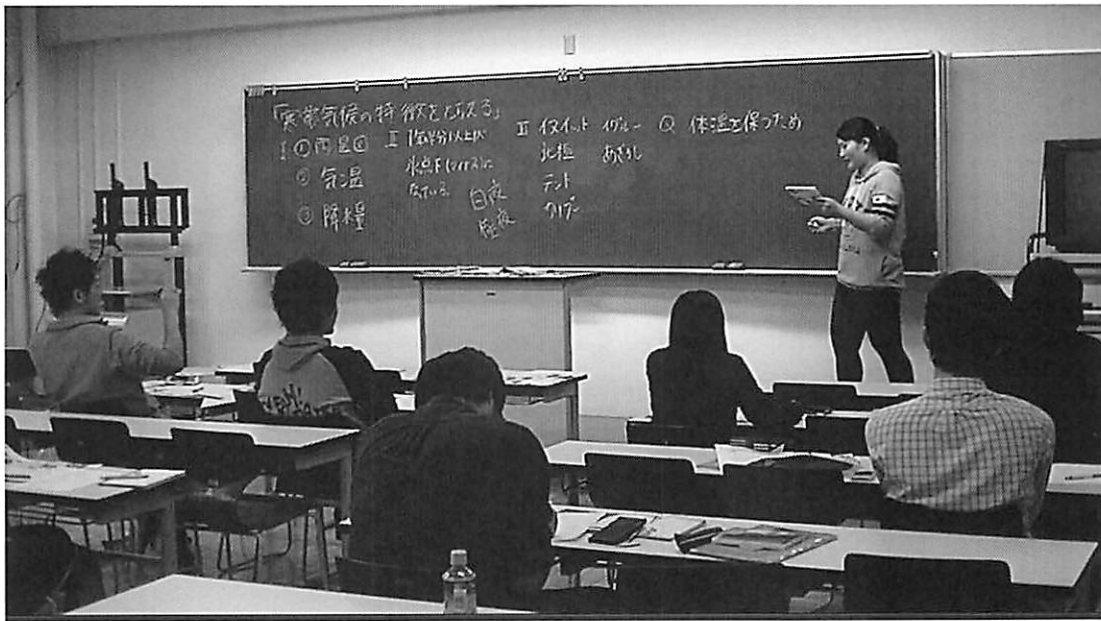 「寒帯気候の特徴をとらえる」
I ①雨温図
② 気温
③ 降水量
II 1年半分以上が
氷点下(マイナス)に
なっている
白夜
極夜
III イヌイット イグルー
北極 あざらし
テント
Q 体温を保つため